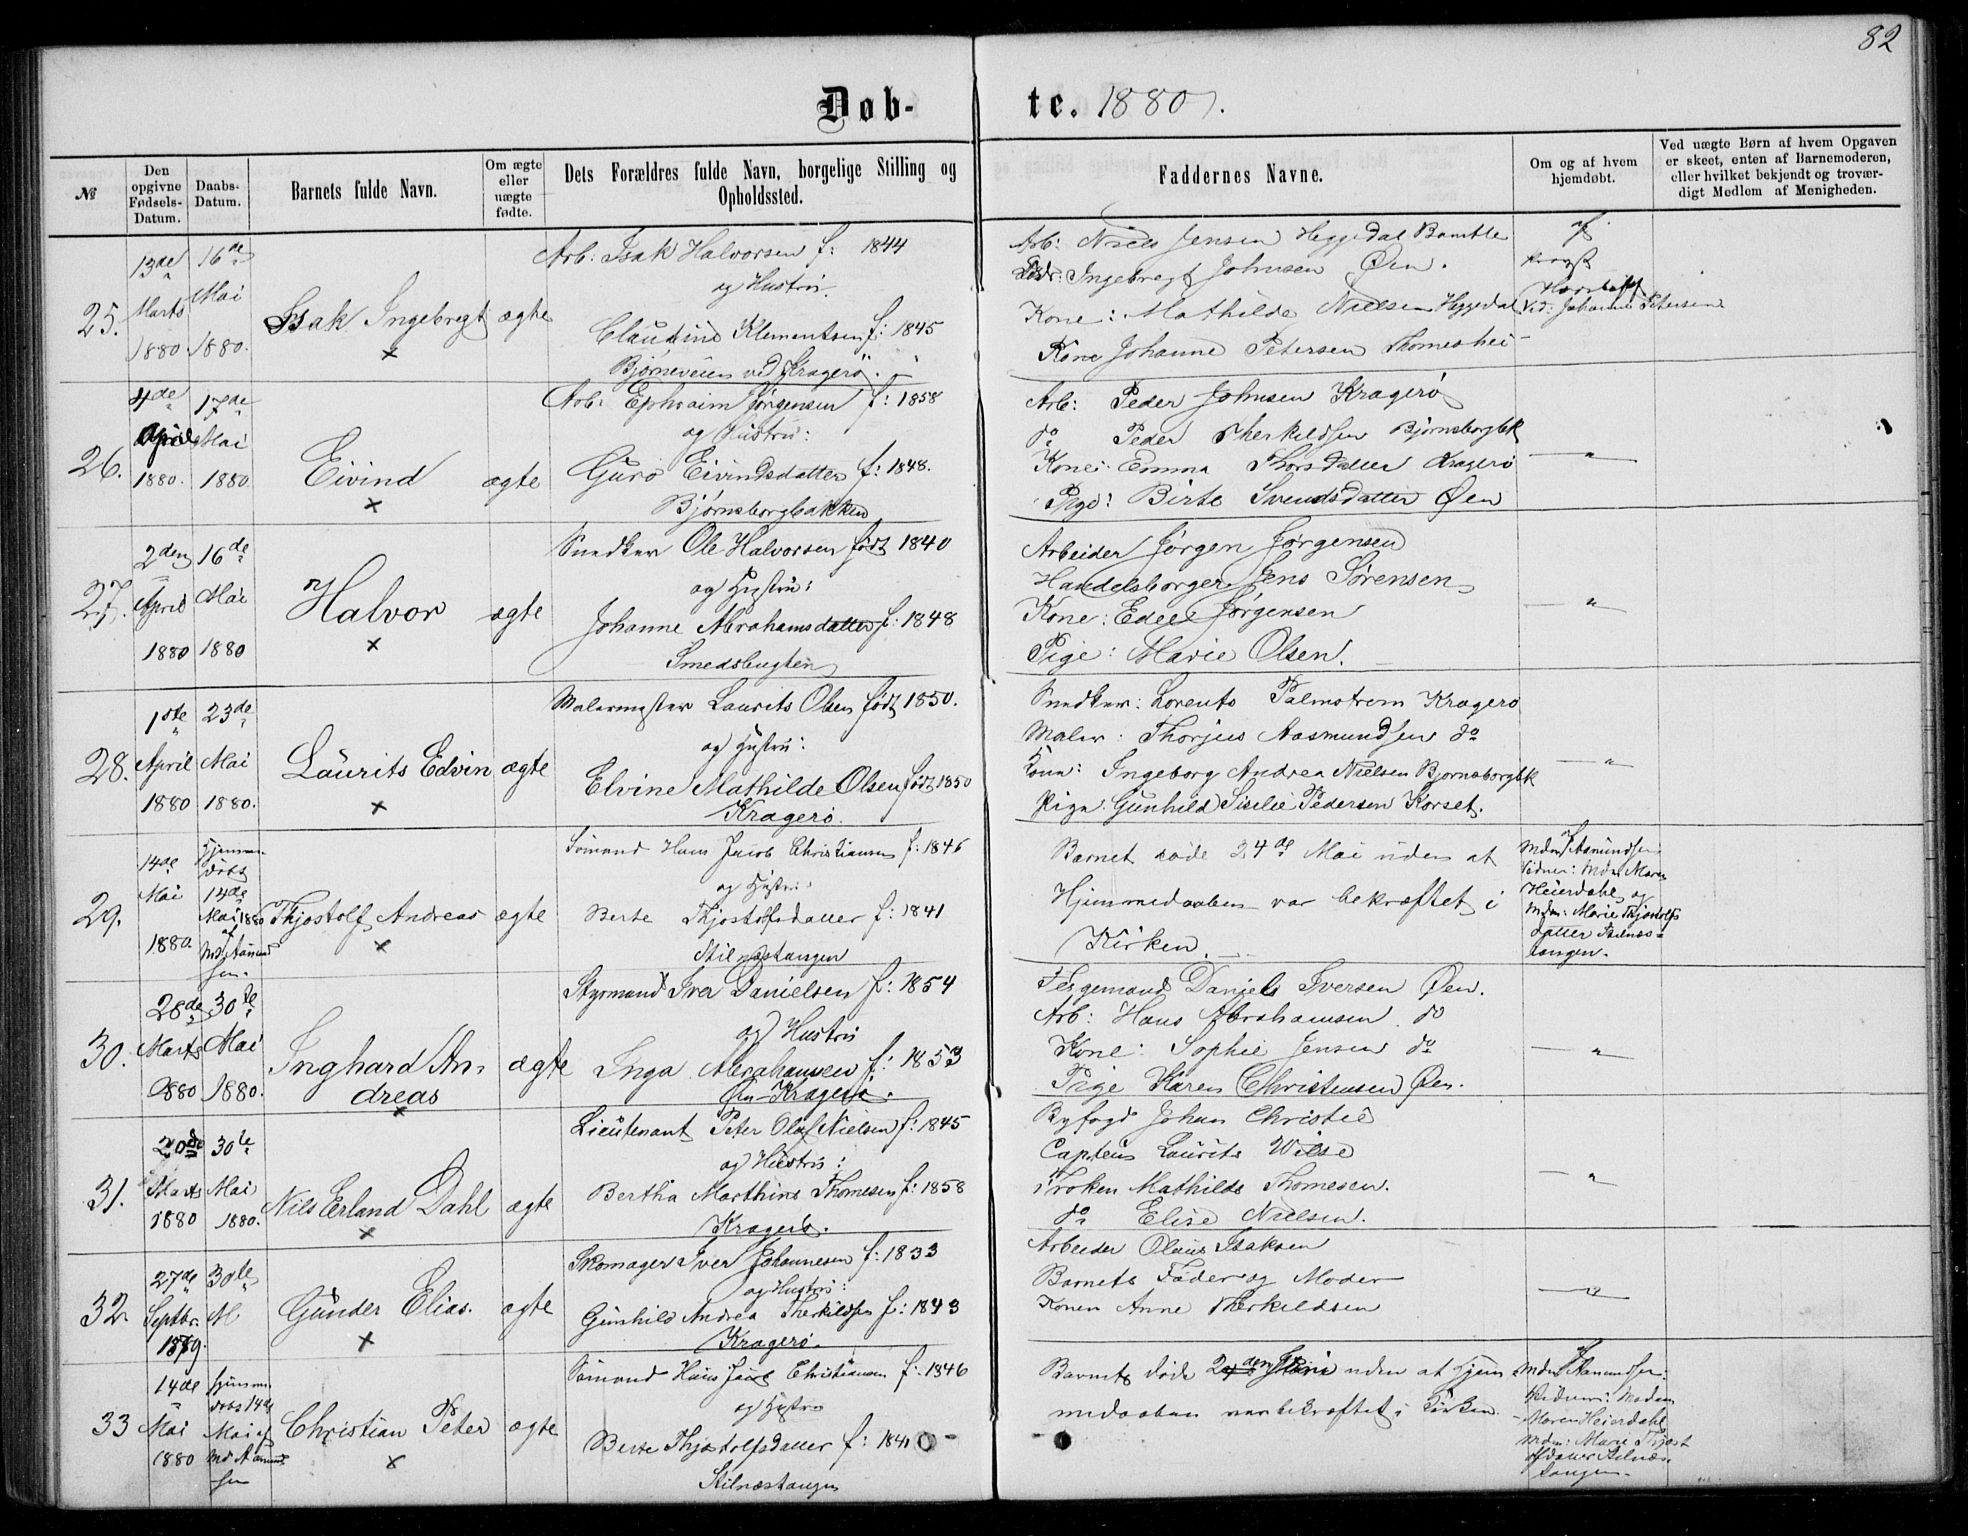 82
Døb- te. 1880.
№
Den opgivne Fødsels-Datum.
Daabs-Datum.
Barnets fulde Navn.
Om ægte eller uægte fødte.
Dets Forældres fulde Navn, borgelige Stilling og Opholdssted.
Faddernes Navne.
Om og af hvem hjemdøbt.
Ved uægte Børn af hvem Opgaven er skeet, enten af Barnemoderen, eller hvilket bekjendt og troværdigt Medlem af Menigheden.
25.
13de Marts 1880.
16de Mai 1880.
Isak Ingebregt
×
ægte
Arb: Isak Halvorsen f: 1844
og Hustru
Claudine Klementsen f: 1845
Bjørneveien ved Kragerø.
Arb: Niels Jensen Heggedal Bamble
Ingebregt Johnsen Øen.
Kone: Mathilde Nielsen Heggedal
Kone Johanne Petersen Thomeshei
af
Vid: Johanne Petersen
26.
4de April 1880.
17de Mai 1880
Eivind
×
ægte
Arb: Ephraim Jørgensen f: 1858
og Hustru:
Guro Eivindsdatter f: 1848.
Bjørnsborgbakken
Arb: Peder Johnsen Kragerø
do Peder Therkildsen Bjørnsborgbk
Kone: Emma Thorsdatter Kragerø
Pige: Birte Svendsdatter Øen
— " —
27.
2den April 1880
16de Mai 1880
Halvor
×
ægte
Snedker Ole Halvorsen født 1840
og Hustru:
Johanne Abrahamsdatter f: 1848
Smedsbugten
Arbeider Jørgen Jørgensen
Handelsborger Jens Sørensen
Kone: Edel Jørgensen
Pige: Marie Olsen.
— " —
28.
1ste April 1880
23de Mai 1880.
Laurits Edvin
×
ægte
Malermester Laurits Olsen født 1850.
og Hustru:
Elvine Mathilde Olsen født 1850
Kragerø.
Snedker: Lorents Palmstrøm Kragerø
Maler: Thorjus Aasmundsen do
Kone: Ingeborg Andrea Nielsen Bjørnsborgbk
Pige: Gunhild Sisilie Pedersen Korset.
— " —
29.
14de Mai 1880.
Hjemmedøbt 14de Mai 1880 af Md. Aamundsen.
Thjostolf Andreas
×
ægte
Sømand Hans Jacob Christiansen f: 1846
og Hustru:
Berte Thjostolfsdatter f: 1841
Stilnæstangen
Barnet døde 24de Mai uden at
Hjemmedaaben var bekræftet i
Kirken.
Mdm Aamundsen
Vidner: Mdm Maren
Heierdahl og
Mdm: Marie Thjostolfs
datter Stilnæs-
tangen.
30.
28de Marts 1880
30te Mai 1880.
Inghard An-
dreas
×
ægte
Styrmand Iver Danielsen f: 1854
og Hustru
Inga Abrahamsen f: 1853
Øen Kragerø.
Færgemand Daniel Iversen Øen.
Arb: Hans Abrahamsen do
Kone: Sophie Jensen do
Pige Karen Christensen Øen.
— " —
31.
20de Marts 1880
30te Mai 1880.
Nils Erland Dahl
×
ægte
Lieutenant Peter Olaf Nielsen f: 1845
og Hustru:
Bertha Marthine Thomesen f: 1858
Kragerø.
Byfogd Johan Christie
Captein Laurits Wilse
Frøken Mathilde Thomesen.
do Elise Nielsen.
— " —
32.
27de Septbr. 1879.
30te M
Gunder Elias.
×
ægte
Skomager Iver Johannesen f: 1833
og Hustru:
Gunhild Andrea Therkildsen f: 1843
Kragerø.
Arbeider Olaus Isaksen
Barnets Fader og Moder
Konen Anne Therkildsen
— " —
33
14de Mai 1880
Hjemmedøbt 14de Mai af Md Aamundsen
Christian Peter
×
ægte
Sømand Hans Jacob Christiansen f: 1846
og Hustru
Berte Thjostolfsdatter f: 1841
Stilnæstangen
Barnet døde 2den Juni uden at Hjem-
medaaben var bekræftet i Kirken.
af Mdm Aamundsen:
Vidner: Madam
Maren Heierdahl
Mdm: Marie Thjost
olfdatter Stilnæs
tangen.